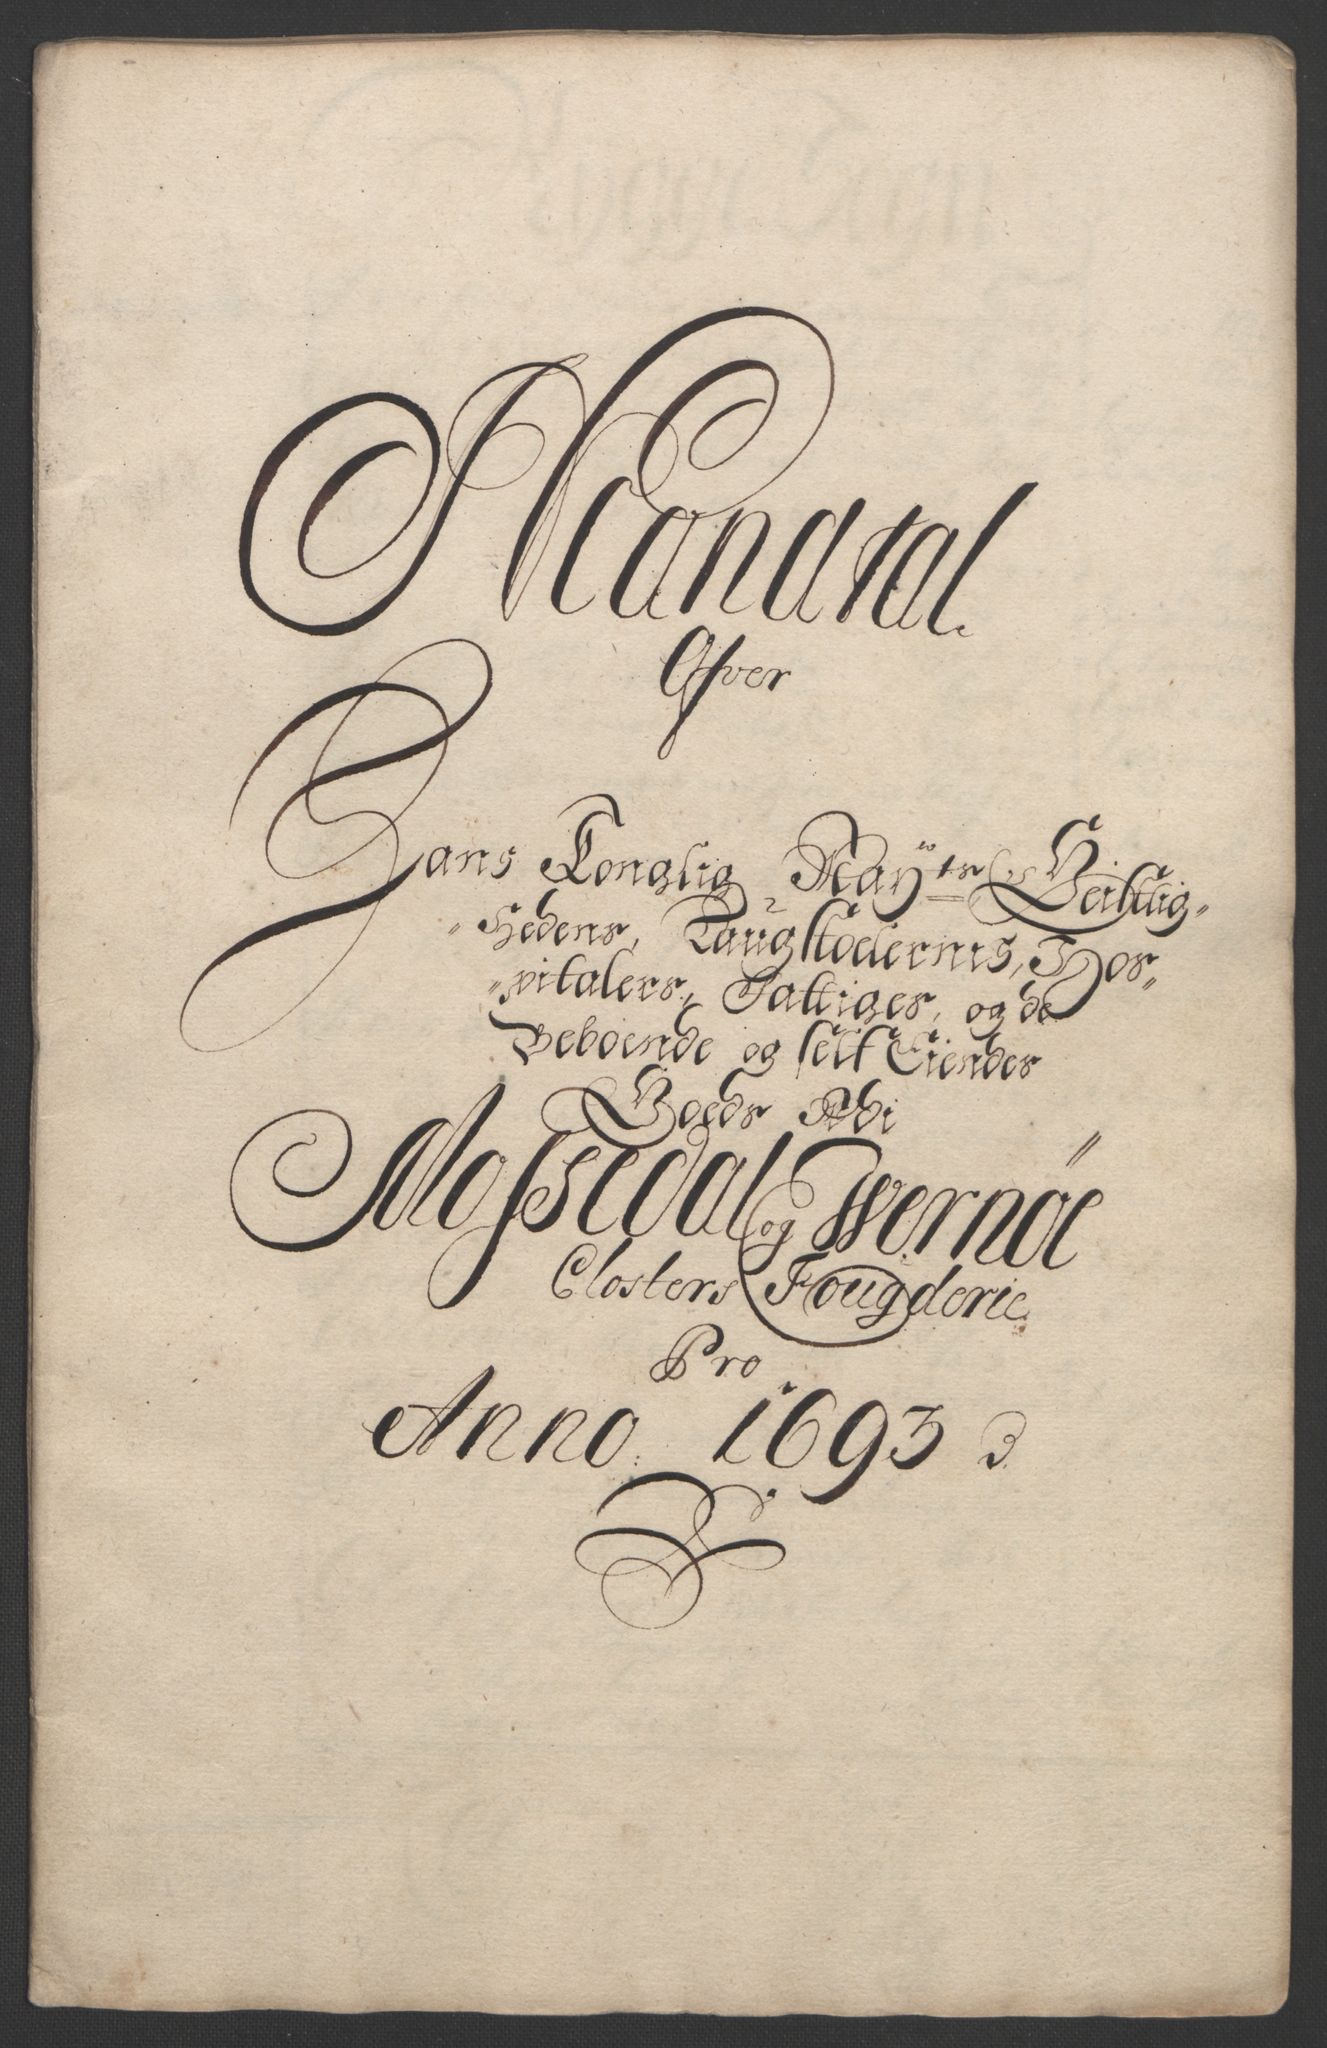 Mandtal
Ofver
Hans Konglig Mayts Geistlig-
hedens, Laugstoelernis, Hos-
pitalers, Fattiges, og de
Beboende og self Eiendes
Goeds Udi
Mossedal og Wernøe
Closters Fougderie
Pro
Anno 1693